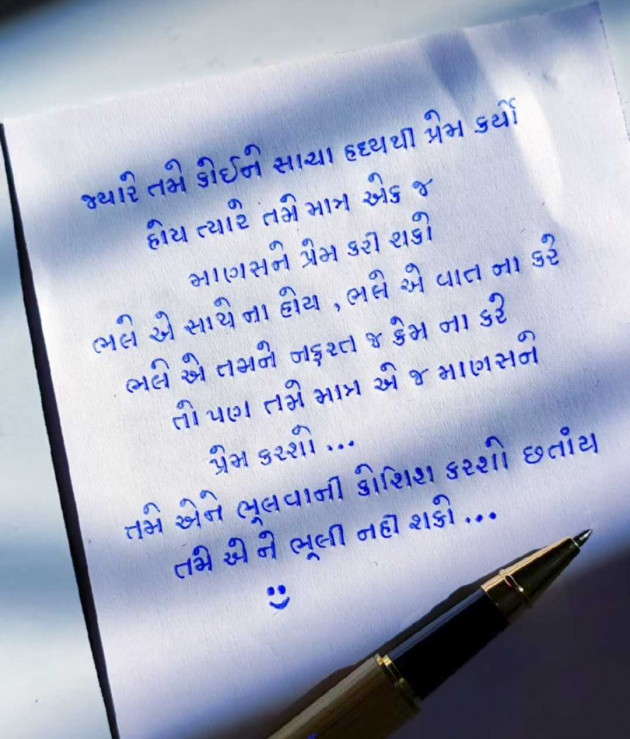 જ્યારે તમે કોઈને સાચા હૃદયથી પ્રેમ કર્યો
હોય ત્યારે તમે માત્ર એક જ
માણસને પ્રેમ કરી શકો
ભલે એ સાથે ના હોય , ભલે એ વાત ના કરે
ભલે એ તમને નફરત જ કેમ ના કરે
તો પણ તમે માત્ર એ જ માણસને
પ્રેમ કરશો ...
તમે એને ભૂલવાની કોશિશ કરશો છતાંય
તમે એ ને ભૂલી નહી શકો ...